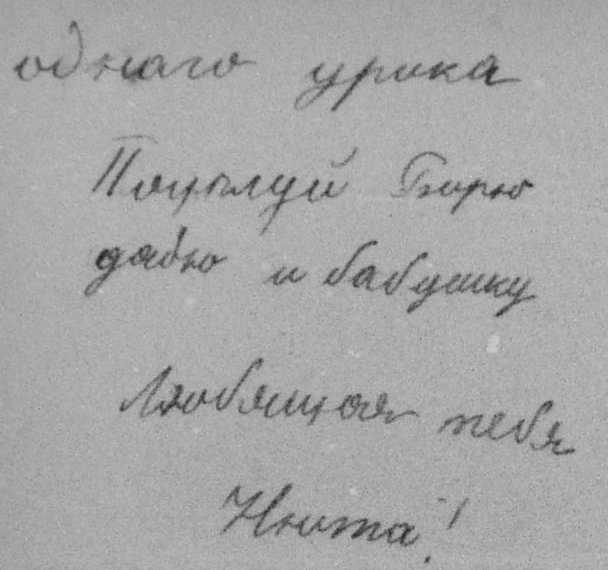 однаго урока
Поцылуй Борю
дядю и бабушку
Любящая тебя
Нюта!